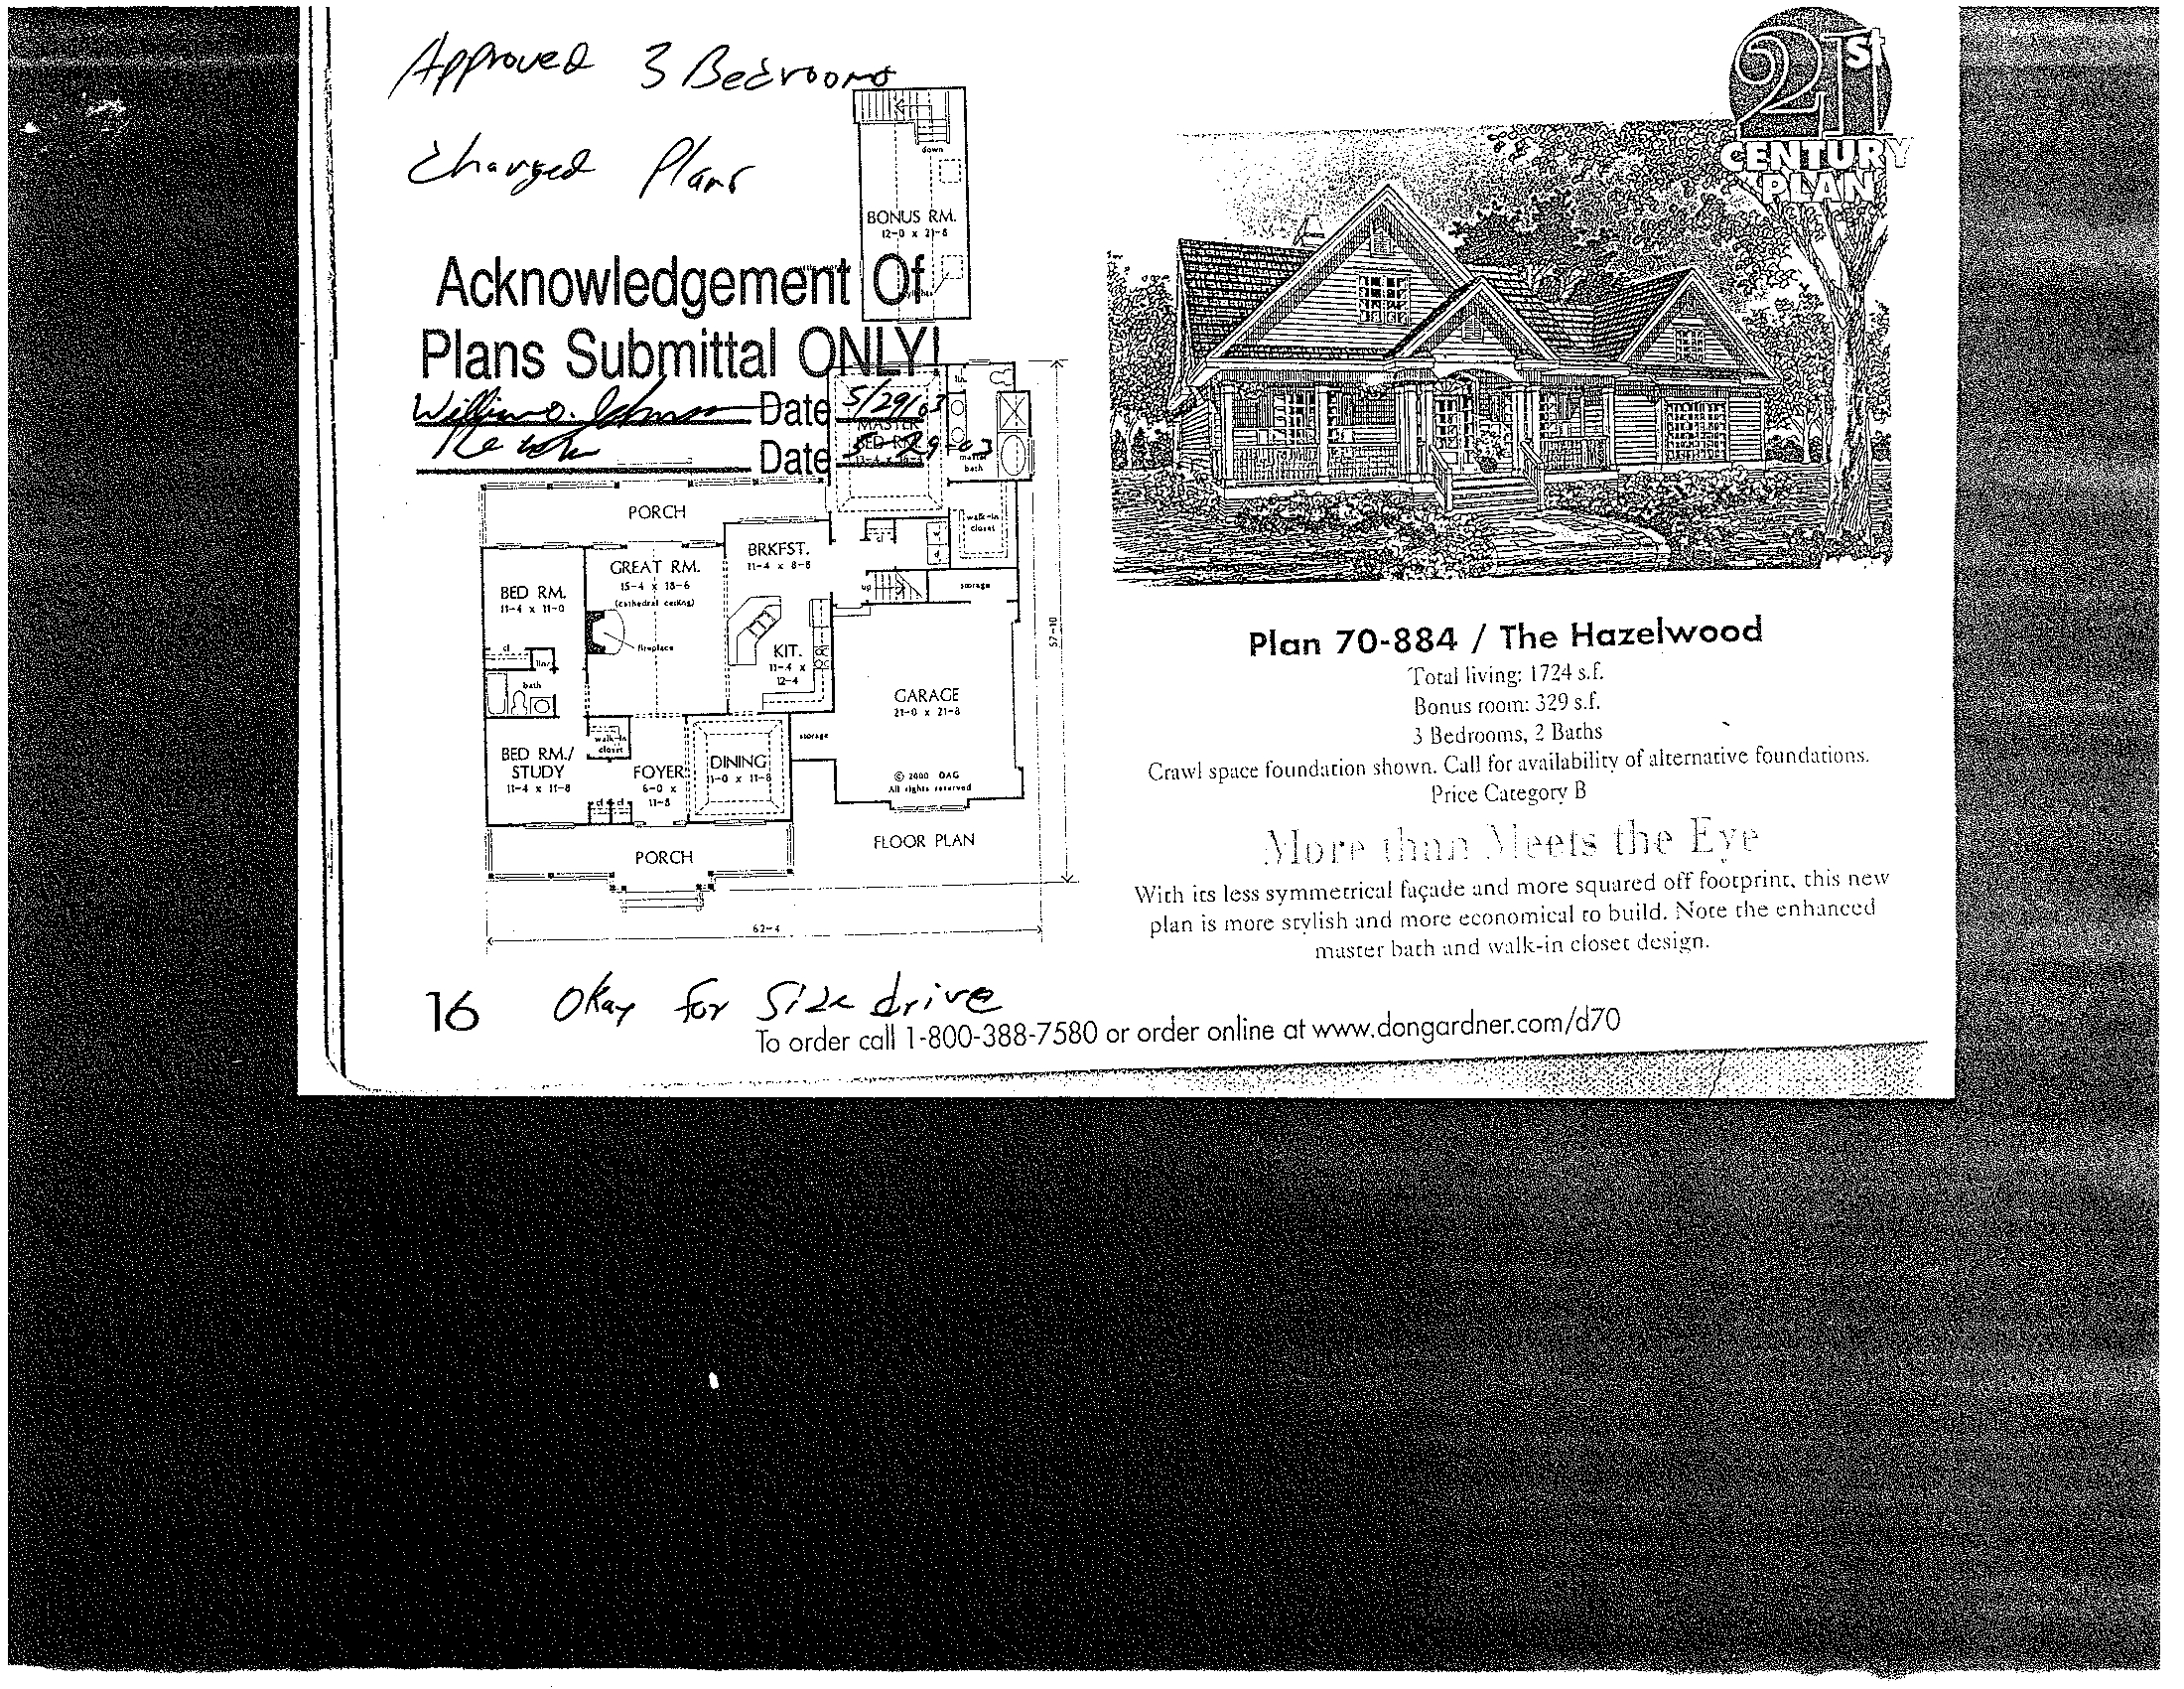 Approved 3 Bedrooms
Changed Plans
Acknowledgement Of
Plans Submittal ONLY!
Date 5/29/03
Date 5-29-03
down
BONUS RM.
12-0 x 21-8
lin.
MASTER
BED RM.
master
bath
PORCH
walk-in
closet
BRKFST.
11-4 x 8-8
cl
w
d
GREAT RM.
15-4 x 18-6
(cathedral ceiling)
BED RM.
11-4 x 11-0
up
storage
fireplace
KIT.
11-4 x
12-4
cl
lin.
bath
GARAGE
21-0 x 21-8
57-10
walk-in
closet
storage
BED RM./
STUDY
11-4 x 11-8
FOYER
6-0 x
11-8
DINING
11-0 x 11-8
cl cl
© 2000 DAG
All rights reserved
FLOOR PLAN
PORCH
62-4
21st
CENTURY
PLAN
Plan 70-884 / The Hazelwood
Total living: 1724 s.f.
Bonus room: 329 s.f.
3 Bedrooms, 2 Baths
Crawl space foundation shown. Call for availability of alternative foundations.
Price Category B
More than Meets the Eye
With its less symmetrical façade and more squared off footprint, this new
plan is more stylish and more economical to build. Note the enhanced
master bath and walk-in closet design.
16
Okay for Side drive
To order call 1-800-388-7580 or order online at www.dongardner.com/d70